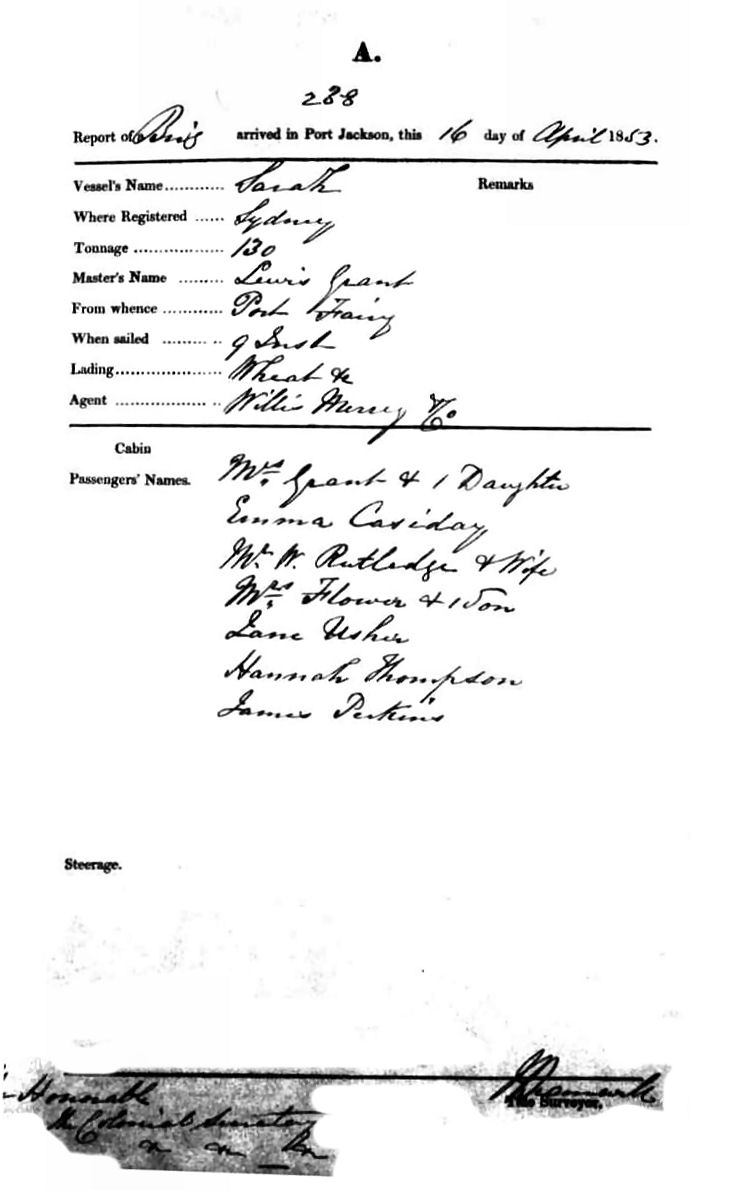 A.
238
Report of Brig arrived in Port Jackson, this 16 day of April 1853.
Vessel's Name............ Sarah Remarks
Where Registered ...... Sydney
Tonnage .................. 130
Master's Name ......... Lewis Grant
From whence ............ Port Fairy
When sailed ......... .. 9 Inst
Lading...................... Wheat &c
Agent .................. .. Willis Merry & Co
Cabin
Passengers' Names. Mrs Grant & 1 Daughter
Emma Casiday
Mr W. Rutledge & Wife
Mrs Flower & 1 Son
Jane Usher
Hannah Thompson
James Perkins
Steerage.
Honorable
The Colonial Secretary
&c &c &c
Tide Surveyor.